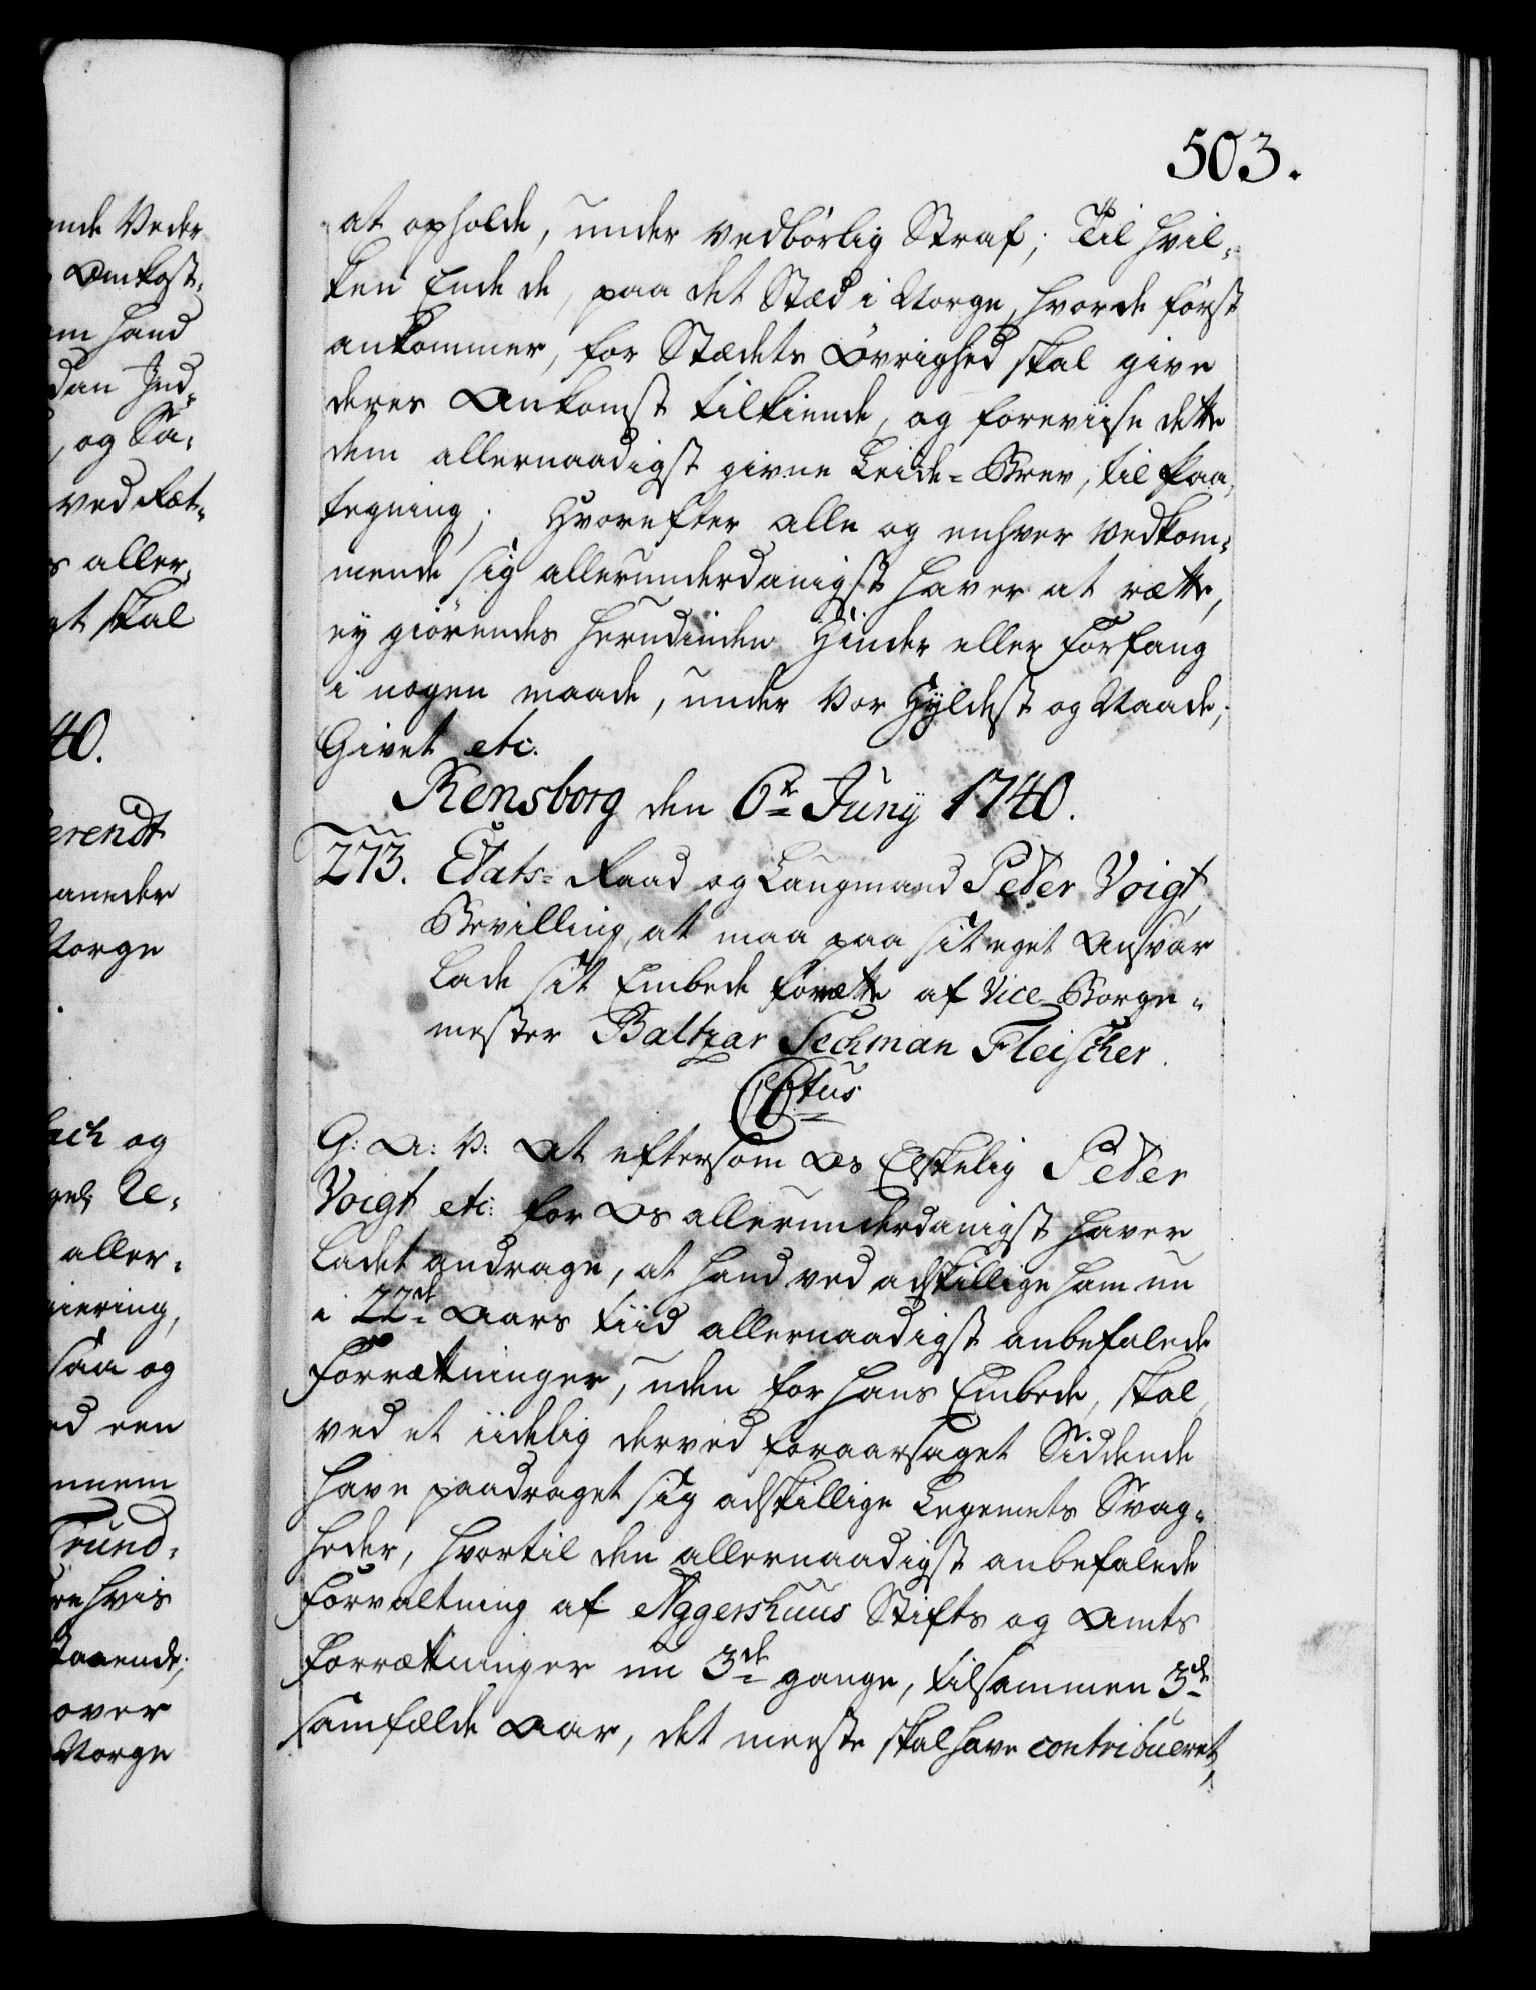 503.
at opholde, under vedbörlig Straf; Til hvil-
ken Ende de, paa det Stæd i Norge, hvor de först
ankommer, for Stædets Övrighed skal give
deres Ankomst tilkiende, og foreviise dette
dem allernaadigst givne Leide-Brev, til Paa-
tegning; Hvorefter alle og enhver Vedkom-
mende sig allerunderdanigst haver at rætte,
ey giörendes herudinden Hinder eller Forfang
i nogen maade, under Vor Hyldest og Naade,
Givet etc.
Rensborg den 6te Juny 1740.
273. Etats-Raad og Laugmand Peder Voigt,
Bevilling, at maa paa sit eget Ansvar
lade sit Embede forrætte af Vice Borge-
mester Baltzar Sechman Fleischer.
C 6tus
G: A: V: At eftersom Os Elskelig Peder
Voigt etc: for Os allerunderdanigst haver
ladet andrage, at hand ved adskillige ham nu
i 22de Aars tiid allernaadigst anbefalede
Forrætninger, uden for hans Embede, skal
ved et iidelig derved foraarsaget Siddende
have paadraget sig adskillige Legemets Svag-
heder, hvortil den allernaadigst anbefalede
Forvaltning af Aggershuus Stifts og Amts
Forrætninger nu 3de gange, tilsammen 3de
samfælde Aar, det meeste skal have contribueret,
ande Veder
Omkost-
em hand
dan Ind-
, og Sa-
ved Ret-
s aller-
gt skal
40.
erendt
aaneder
Norge
ach og
aller-
saa og
ed een
nnem
hvis
over
Norge